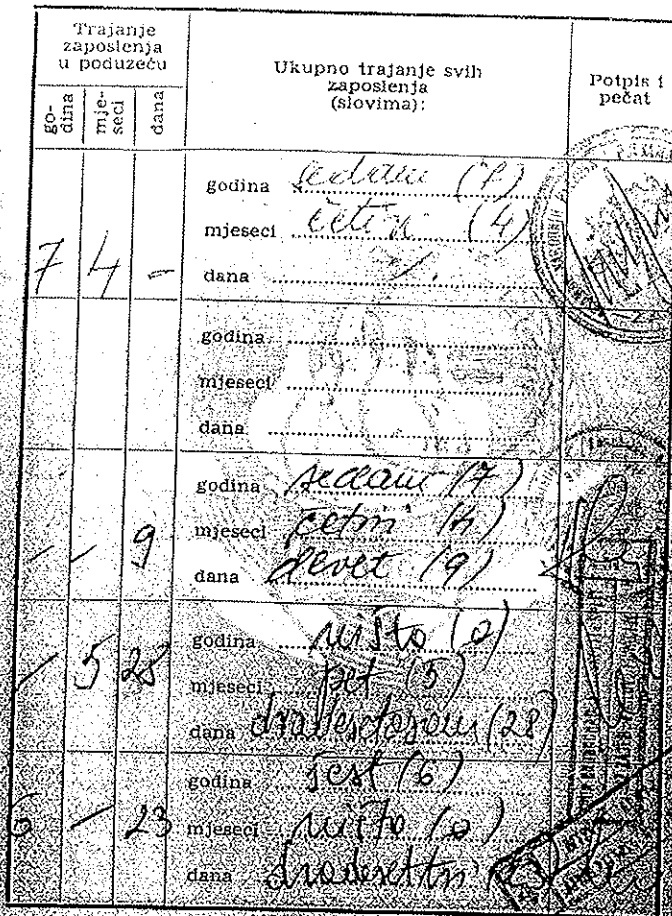 Trajanje
zaposlenja
u poduzeću
go-
dina
mje-
seci
dana
Ukupno trajanje svih
zaposlenja
(slovima):
Potpis i
pečat
7 4 -
godina sedam (7)
mjeseci četiri (4)
dana /.
godina
mjeseci
dana
/ / 9
godina sedam (7)
mjeseci četiri (4)
dana devet (9)
/ 5 28
godina ništo (0)
mjeseci pet (5)
dana dvadesetosam (28)
6 / 23
godina šest (6)
mjeseci ništo (0)
dana dvadesettri (23)